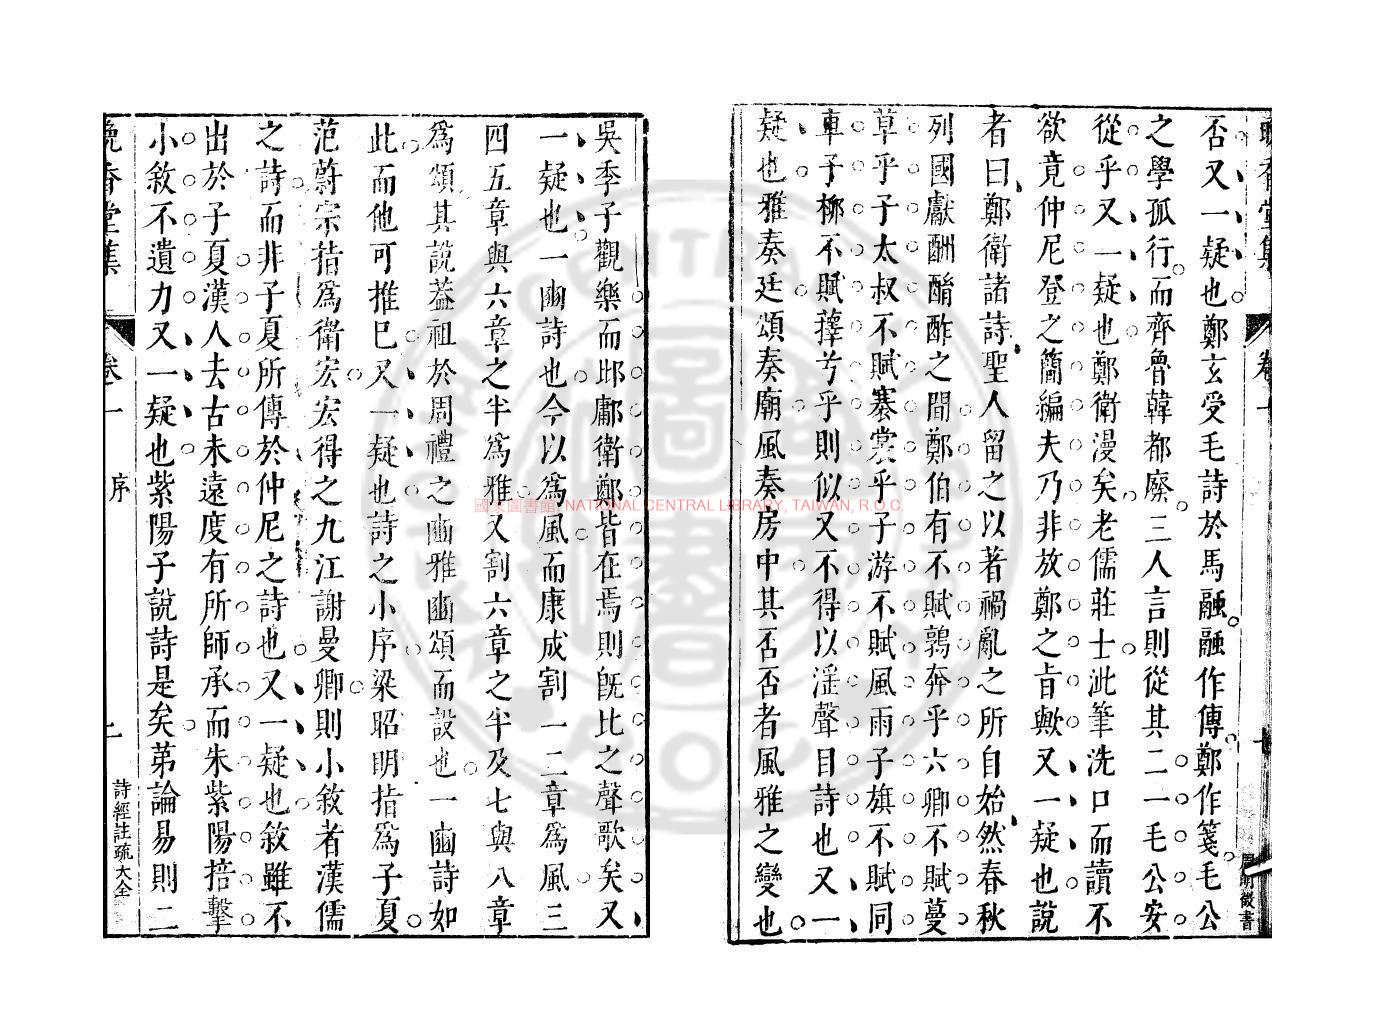 否又一疑也鄭玄受毛詩於馬融融作傳鄭作箋毛公
之學孤行而齊魯韓都廢三人言則從其二一毛公安
從乎又一疑也鄭衛漫矣老儒莊士泚筆洗口而讀不
欲竟仲尼登之簡編夫乃非放鄭之旨歟又一疑也說
者曰鄭衛諸詩聖人留之以著禍亂之所自始然春秋
列國獻酬酳酢之間鄭伯有不賦鶉奔乎六卿不賦蔓
草乎子太叔不賦褰裳乎子游不賦風雨子旗不賦同
車子柳不賦蘀兮乎則似又不得以淫聲目詩也又一
疑也雅奏廷頌奏廟風奏房中其否否者風雅之變也
吳季子觀樂而邶鄘衛鄭皆在焉則旣比之聲歌矣又
一疑也一豳詩也今以為風而康成割一二章為風三
四五章與六章之半爲雅又割六章之半及七與八章
爲頌其說葢祖於周禮之豳雅豳頌而設也一豳詩如
此而他可推巳又一疑也詩之小序梁昭明指爲子夏
范蔚宗指爲衛宏宏得之九江謝曼卿則小敘者漢儒
之詩而非子夏所傳於仲尼之詩也又一疑也敘雖不
出於子夏漢人去古未遠度有所師承而朱紫陽掊擊
小敘不遺力又一疑也紫陽子說詩是矣苐論易則二
晚香堂集
卷一
序
二
詩經註疏大全
國家圖書館 NATIONAL CENTRAL LIBRARY, TAIWAN, R.O.C.